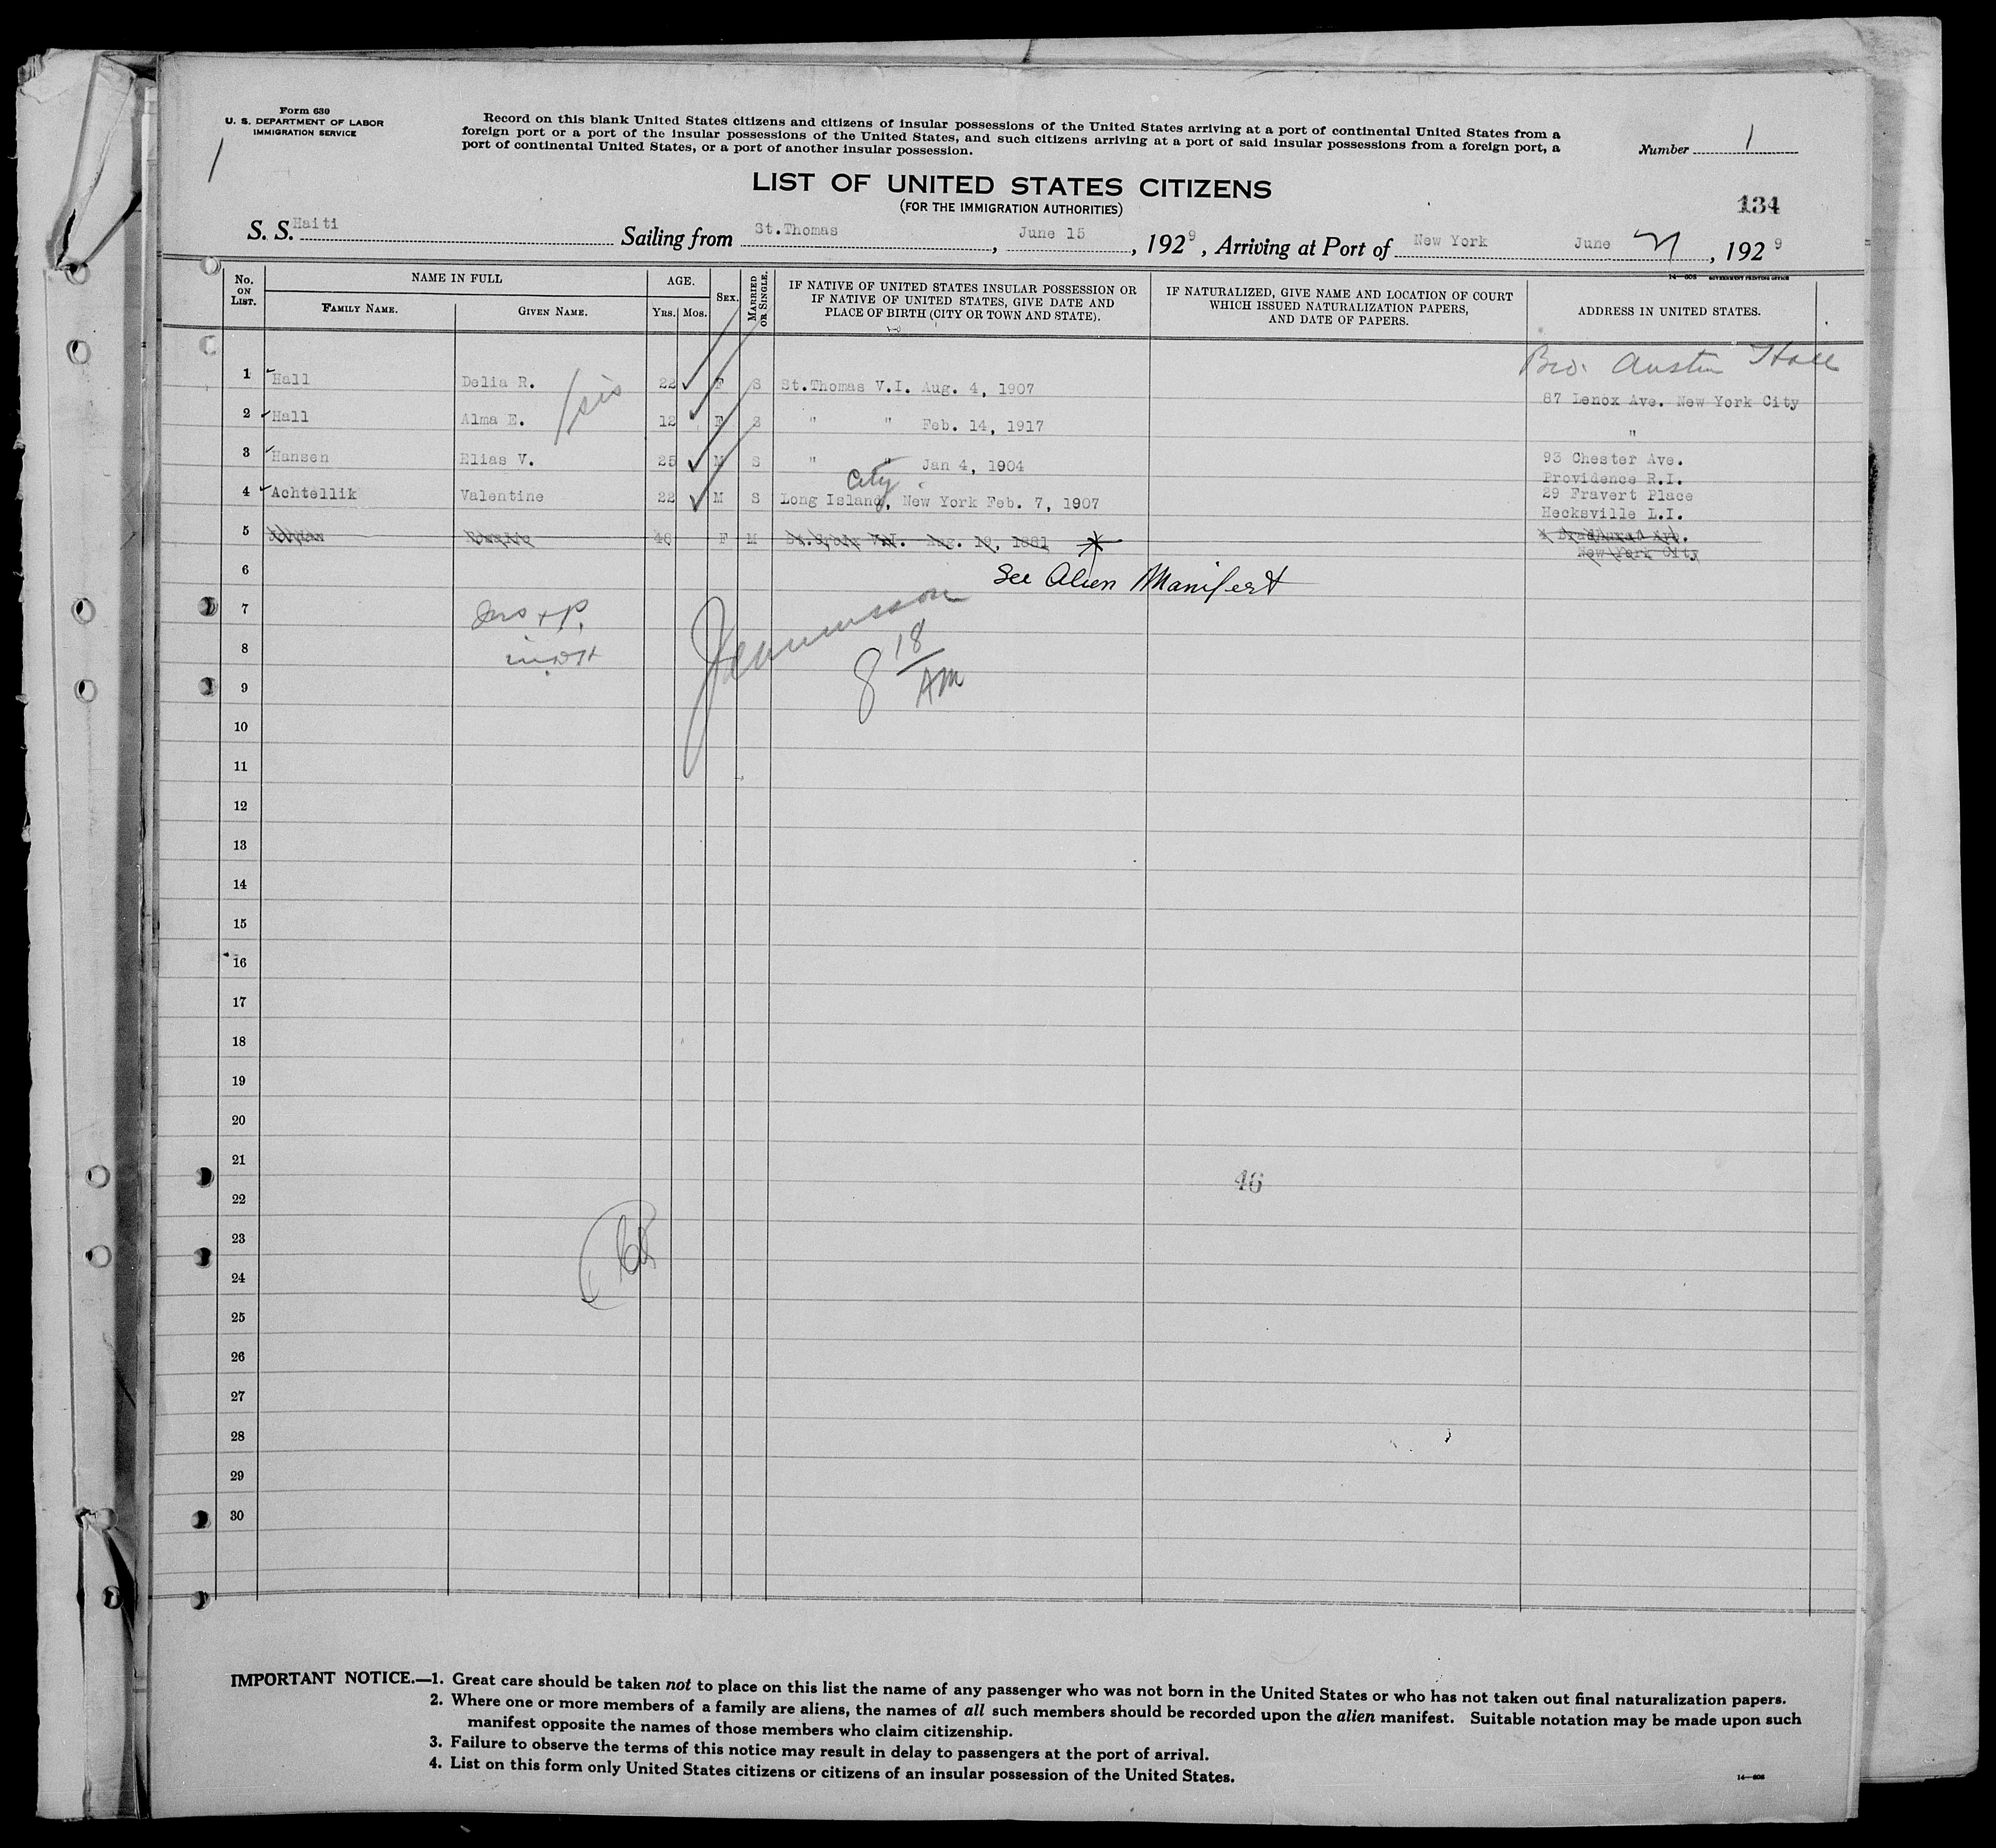 Form 630
U. S. DEPARTMENT OF LABOR
IMMIGRATION SERVICE
1
Record on this blank United States citizens and citizens of insular possessions of the United States arriving at a port of continental United States from a
foreign port or a port of the insular possessions of the United States, and such citizens arriving at a port of said insular possessions from a foreign port, a
port of continental United States, or a port of another insular possession.
Number 1
LIST OF UNITED STATES CITIZENS
(FOR THE IMMIGRATION AUTHORITIES)
134
S. S. Haiti Sailing from St.Thomas, June 15, 1929, Arriving at Port of New York June 21, 1929
14—608 GOVERNMENT PRINTING OFFICE
No. ON LIST. NAME IN FULL FAMILY NAME. GIVEN NAME. AGE. YRS. MOS. SEX. MARRIED OR SINGLE. IF NATIVE OF UNITED STATES INSULAR POSSESSION OR IF NATIVE OF UNITED STATES, GIVE DATE AND PLACE OF BIRTH (CITY OR TOWN AND STATE). IF NATURALIZED, GIVE NAME AND LOCATION OF COURT WHICH ISSUED NATURALIZATION PAPERS, AND DATE OF PAPERS. ADDRESS IN UNITED STATES.
Bro. Austin Hall
1 Hall Delia R. 22 F S St.Thomas V.I. Aug. 4, 1907 87 Lenox Ave. New York City
sis
2 Hall Alma E. 12 F S " " Feb. 14, 1917 "
3 Hansen Elias V. 25 M S " " Jan 4, 1904 93 Chester Ave.
Providence R.I.
City
4 Achtellik Valentine 22 M S Long Island, New York Feb. 7, 1907 29 Fravert Place
Hecksville L.I.
5 40 F M St.Croix V.I. Aug. 1881 Bradhurst Ave.
New York City
6 See Alien Manifest
7
8 8 18 AM
9
10
11
12
13
14
15
16
17
18
19
20
21
46
22
23
24
25
26
27
28
29
30
IMPORTANT NOTICE.—1. Great care should be taken not to place on this list the name of any passenger who was not born in the United States or who has not taken out final naturalization papers.
2. Where one or more members of a family are aliens, the names of all such members should be recorded upon the alien manifest. Suitable notation may be made upon such
manifest opposite the names of those members who claim citizenship.
3. Failure to observe the terms of this notice may result in delay to passengers at the port of arrival.
4. List on this form only United States citizens or citizens of an insular possession of the United States.
14—608